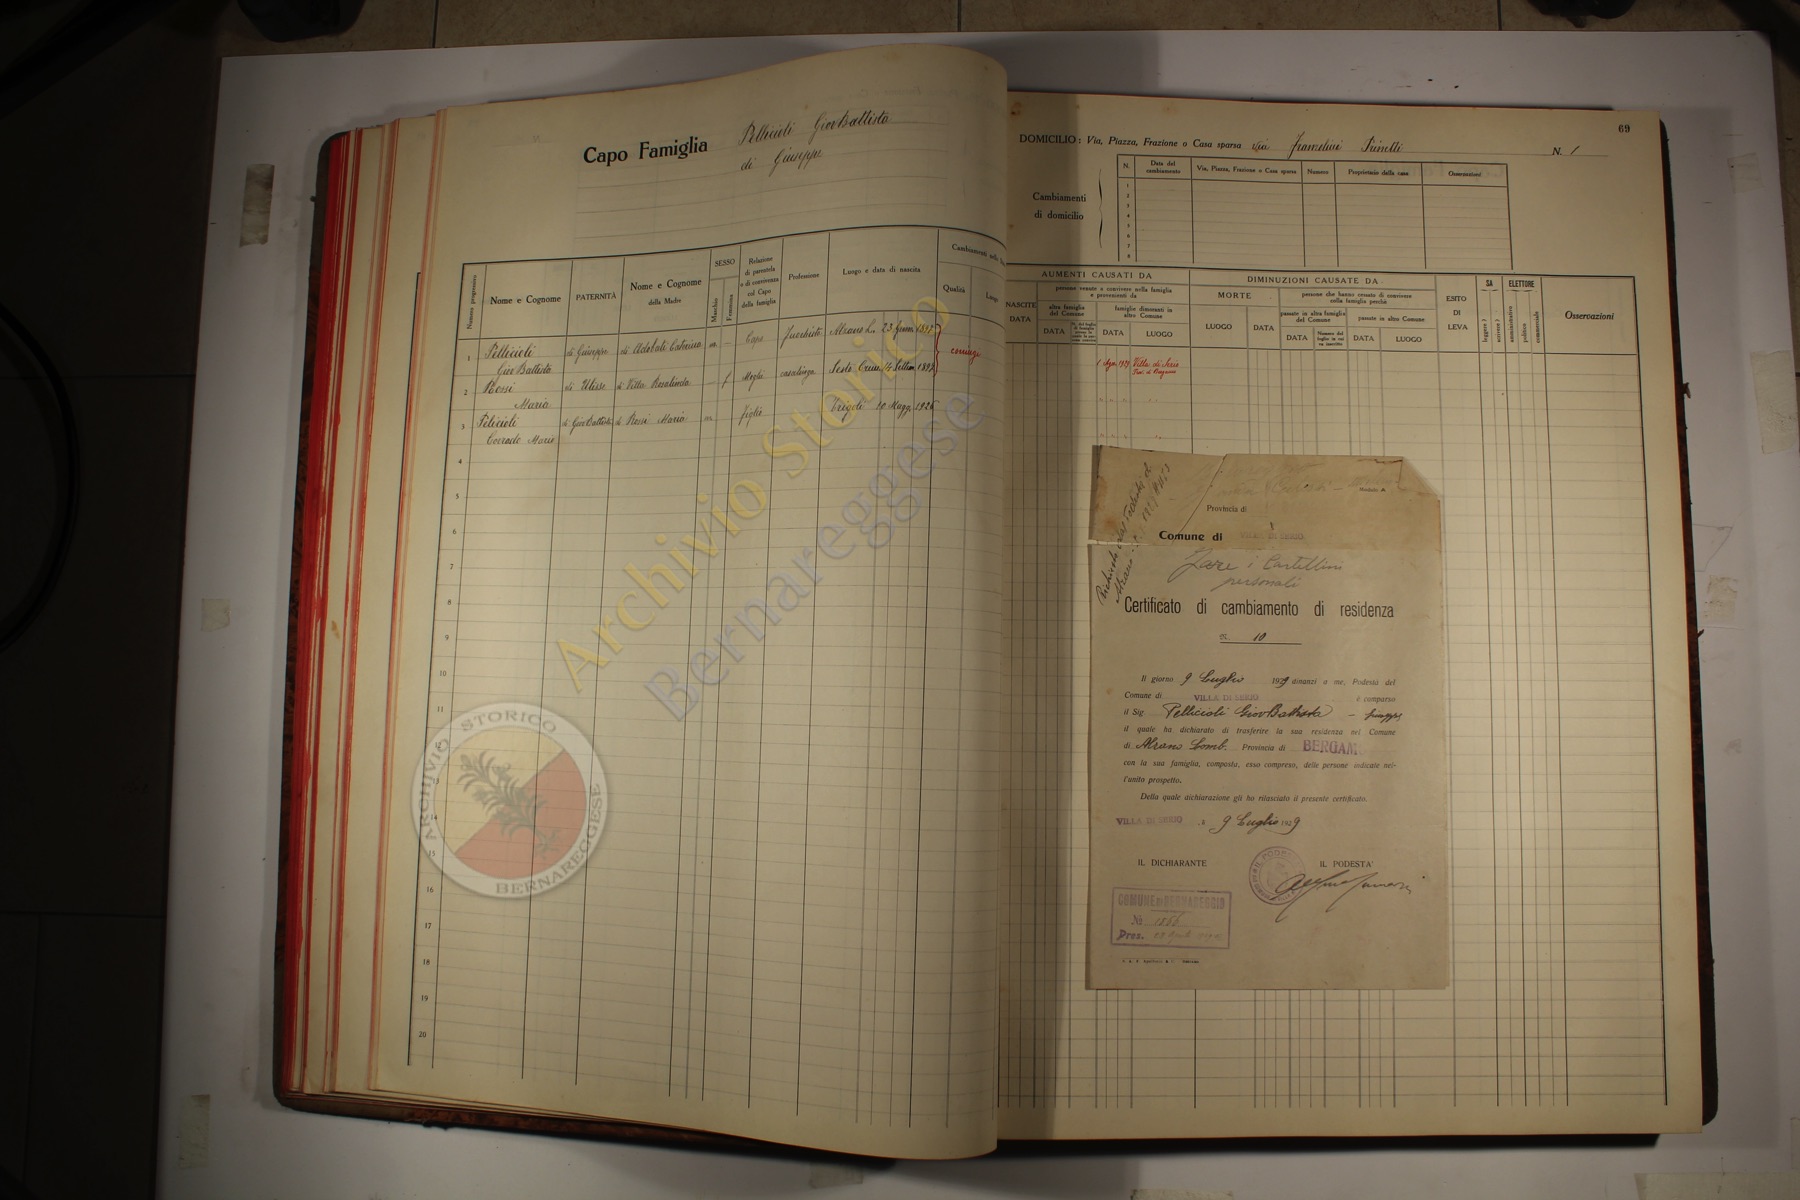 Capo Famiglia Pellicioli Giov Battista
di Giuseppe
Numero progressivo
Nome e Cognome
PATERNITÀ
Nome e Cognome
della Madre
SESSO
Maschio
Femmina
Relazione
di parentela
e di convivenza
col Capo
della famiglia
Professione
Luogo e data di nascita
Cambiamenti nello
Qualità
Luogo
1 Pellicioli di Giuseppe di Adobati Caterina m. – Capo Alzano L. 23 1897
Giov Battista
coniugi
2 Rossi di Ulisse di Villa – f Moglie casalinga Sesto 14 1897
Maria
3 Pelicioli di Giov Battista di Rossi Maria m figlio 10 Magg. 1926
Corrado Mario
4
5
6
7
8
9
10
11
13
14
15
16
17
18
19
20
69
DOMICILIO: Via, Piazza, Frazione o Casa sparsa via N. 1
Cambiamenti
di domicilio
N.
Data del
cambiamento
Via, Piazza, Frazione o Casa sparsa
Numero
Proprietario della casa
Osservazioni
1
2
3
4
5
6
7
8
AUMENTI CAUSATI DA
NASCITE
DATA
persone venute a convivere nella famiglia
e provenienti da
altra famiglia
del Comune
DATA
famiglie dimoranti in
altro Comune
DATA
LUOGO
DIMINUZIONI CAUSATE DA
MORTE
LUOGO
DATA
persone che hanno cessato di convivere
nella famiglia perchè
passate in altra famiglia
del Comune
DATA
Numero del
foglio in cui
fu inscritto
passate in altro Comune
DATA
LUOGO
ESITO
DI
LEVA
SA
leggere
scrivere
ELETTORE
amministrativo
politico
commerciale
Osservazioni
1929 Villa di Serio
Modulo A
Provincia di
Comune di VILLA DI SERIO
Fare i Cartellini
personali
Certificato di cambiamento di residenza
N. 10
Il giorno 9 Luglio 1929 dinanzi a me, Podestà del
Comune di VILLA DI SERIO è comparso
il Sig Pellicioli Giov Battista – Giuseppe
il quale ha dichiarato di trasferire la sua residenza nel Comune
di Alzano Lomb. Provincia di BERGAM
con la sua famiglia, composta, esso compreso, delle persone indicate nel-
l'unito prospetto.
Della quale dichiarazione gli ho rilasciato il presente certificato.
VILLA DI SERIO , li 9 Luglio 1929
IL DICHIARANTE
IL PODESTA'
COMUNE DI BERNAREGGIO
No
Pres.
Archivio Storico
Bernareggese
ARCHIVIO STORICO
BERNAREGGESE